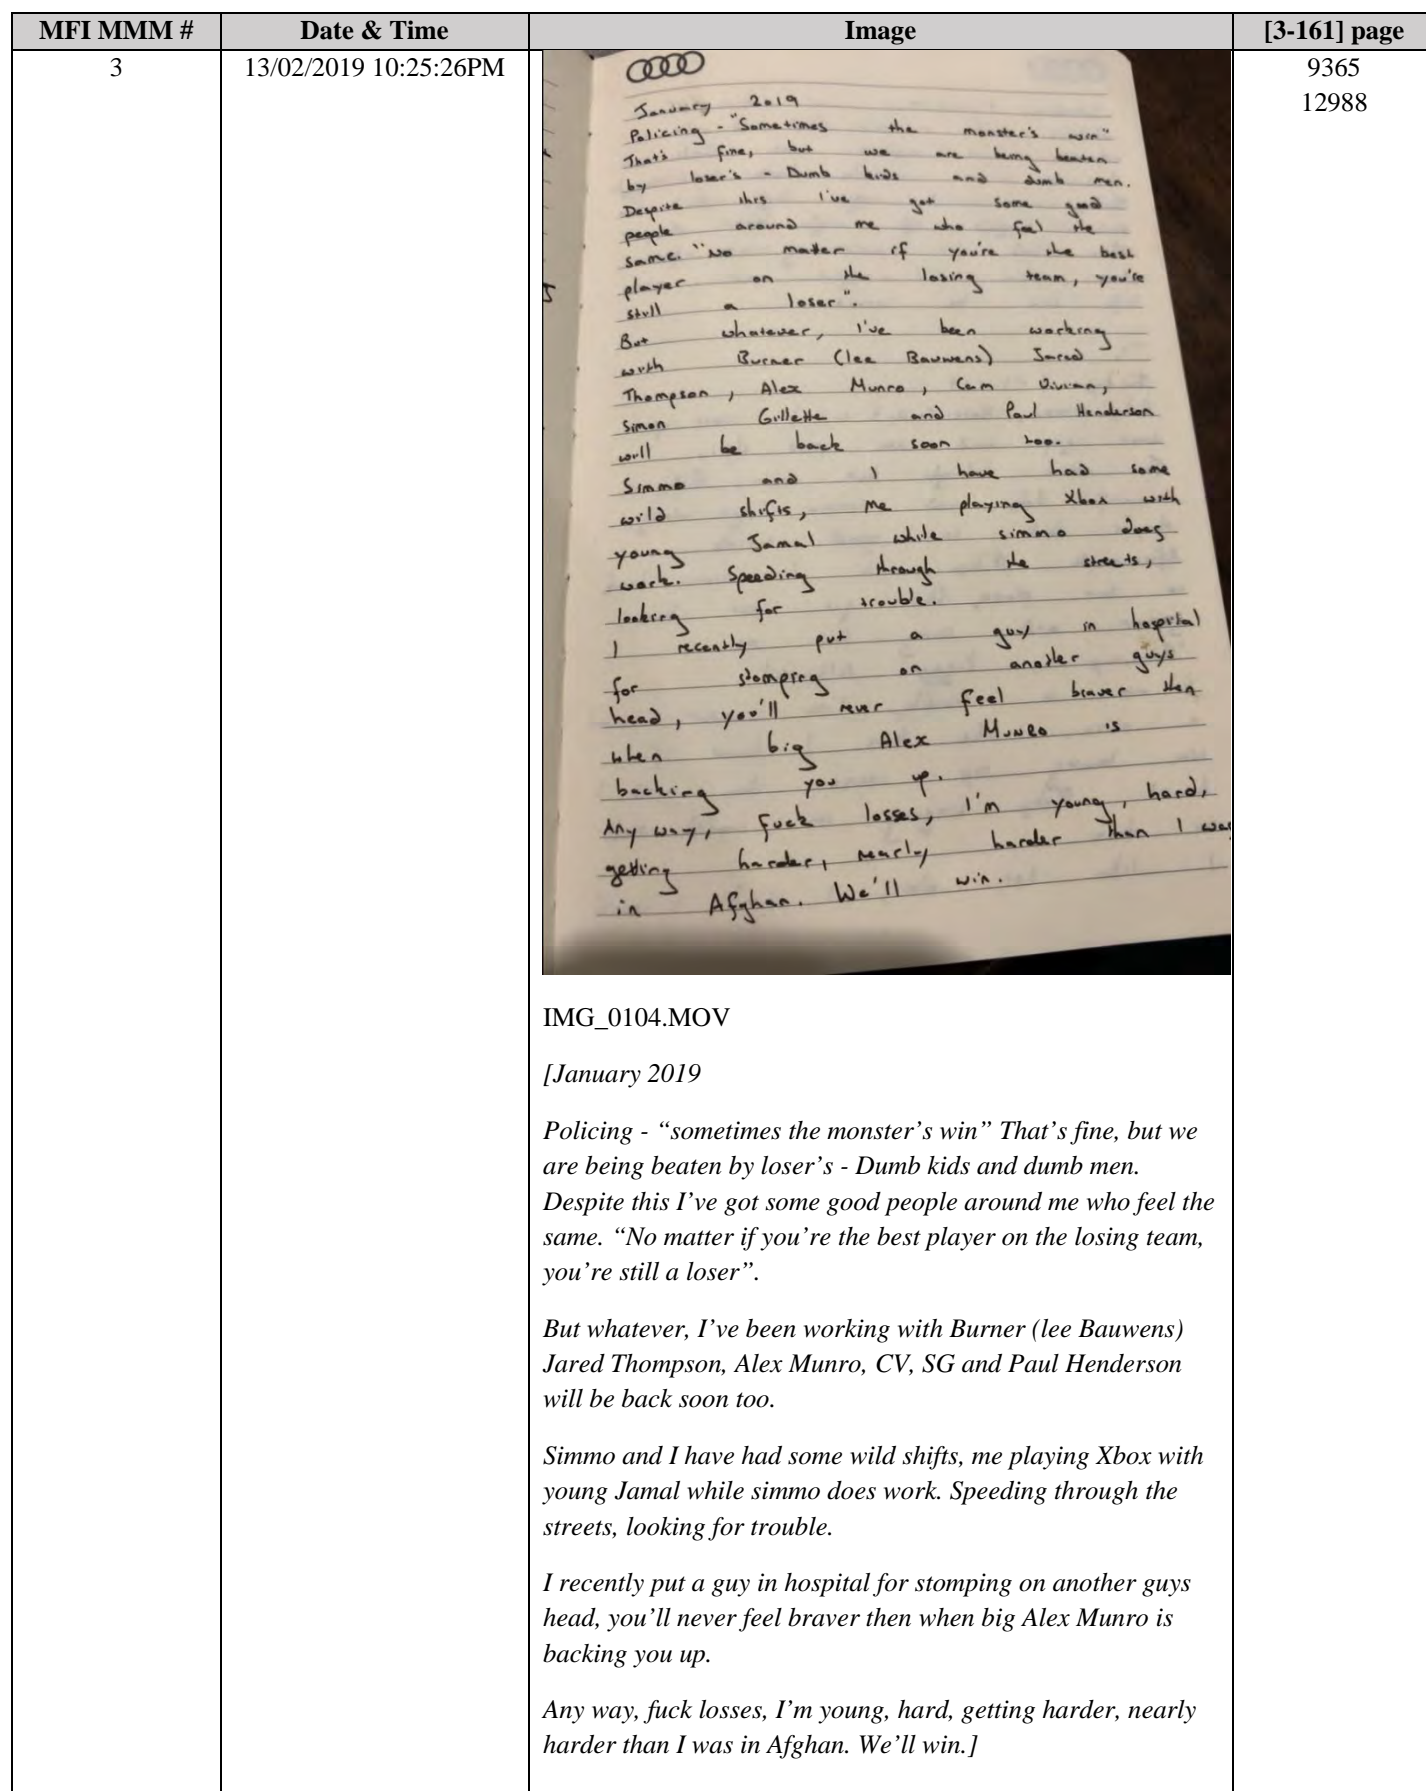 MFI MMM #
Date & Time
Image
[3-161] page
3
13/02/2019 10:25:26PM
9365
12988
January 2019
Policing - "Sometimes the monster's win"
That's fine, but we are being beaten
by loser's - Dumb kids and dumb men.
Despite this I've got some good
people around me who feel the
same. "No matter if you're the best
player on the losing team, you're
still a loser".
But whatever, I've been working
with Burner (lee Bauwens) Jared
Thompson, Alex Munro, Cam Vivian,
Simon Gillette and Paul Henderson
will be back soon too.
Simmo and I have had some
wild shifts, me playing Xbox with
young Jamal while simmo does
work. Speeding through the streets,
looking for trouble.
I recently put a guy in hospital
for stomping on another guys
head, you'll never feel braver then
when big Alex Munro is
backing you up.
Any way, fuck losses, I'm young, hard,
getting harder, nearly harder than I was
in Afghan. We'll win.
IMG_0104.MOV
[January 2019
Policing - “sometimes the monster’s win” That’s fine, but we
are being beaten by loser’s - Dumb kids and dumb men.
Despite this I’ve got some good people around me who feel the
same. “No matter if you’re the best player on the losing team,
you’re still a loser”.
But whatever, I’ve been working with Burner (lee Bauwens)
Jared Thompson, Alex Munro, CV, SG and Paul Henderson
will be back soon too.
Simmo and I have had some wild shifts, me playing Xbox with
young Jamal while simmo does work. Speeding through the
streets, looking for trouble.
I recently put a guy in hospital for stomping on another guys
head, you’ll never feel braver then when big Alex Munro is
backing you up.
Any way, fuck losses, I’m young, hard, getting harder, nearly
harder than I was in Afghan. We’ll win.]